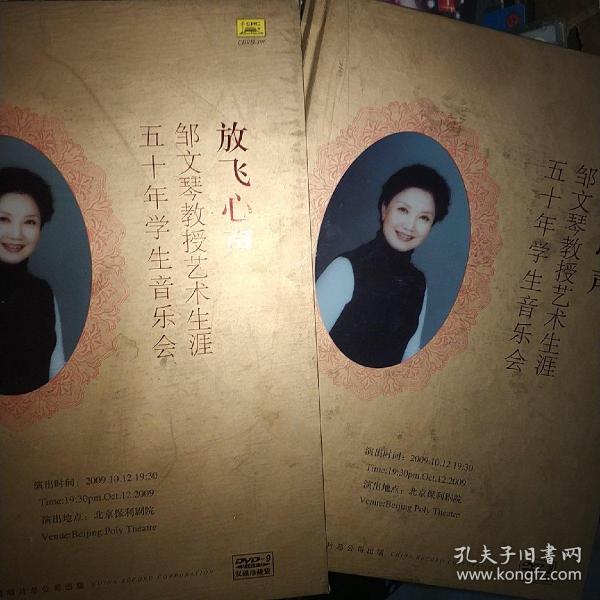 放飞心声
邹文琴教授艺术生涯
五十年学生音乐会
演出时间：2009.10.12 19:30
Time:19:30pm.Oct.12.2009
演出地点：北京保利剧院
Venue:Beijing Poly Theatre
DVD-9
双碟珍藏装
唱片总公司出版 CHINA RECORD CORPORATION
声
邹文琴教授艺术生涯
五十年学生音乐会
演出时间：2009.10.12 19:30
Time:19:30pm.Oct.12.2009
演出地点：北京保利剧院
Venue:Beijing Poly Theatre
片总公司出版 CHINA RECORD
孔夫子旧书网
www.kongfz.com